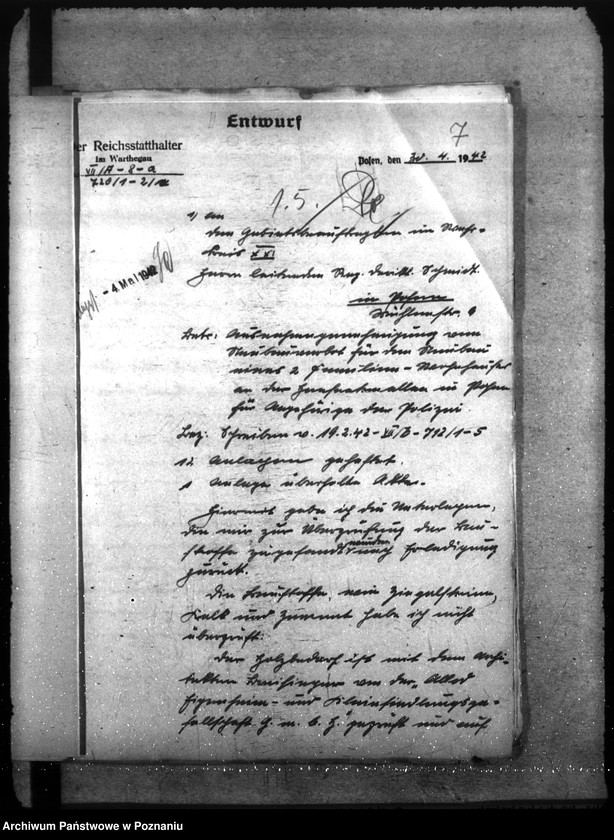 Entwurf
7
er Reichsstatthalter
im Warthegau
VII/A-8-a
720/1-2/
Posen, den 30. 4. 1942
1.5.
1) An
den Gebietsbeauftragten im Wehr-
kreis XXI
Herrn leitenden Reg. Direkt. Schmidt.
in Posen
Mühlenstr. 9
- 4. Mai 1942
Betr: Ausnahmegenehmigung vom
Neubauverbot für den Neubau
eines 2 Familien-
an der in Posen
für Angehörige der Polizei.
Bez: Schreiben v. 19.2.42-VII/B-712/1-5
12 Anlagen geheftet.
1 Anlage überholte Akte.
Hiermit gebe ich die Unterlagen,
die mir zur Überprüfung der Bau-
stoffe zugesandt wurden nach Erledigung
zurück.
Die Baustoffe, wie Ziegelsteine,
Kalk und Zement habe ich nicht
überprüft.
Der Holzbedarf ist mit dem Archi-
tekten von der "
Eigenheim- und Kleinsiedlungsge-
sellschaft G.m.b.H." geprüft und auf
Archiwum Państwowe w Poznaniu